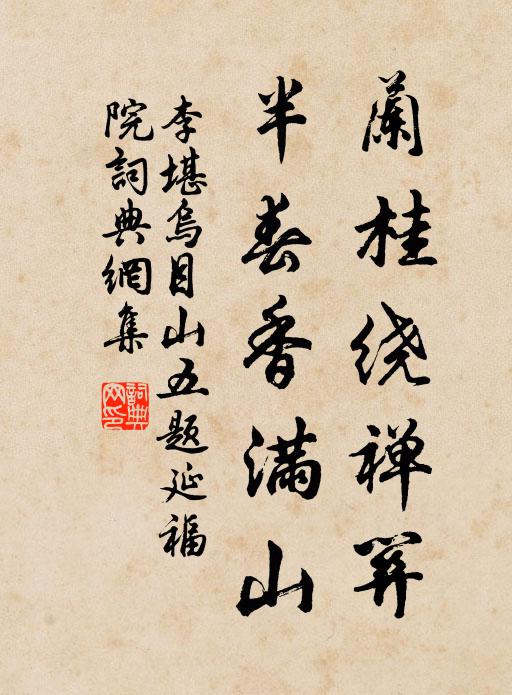 蘭桂绕禅關
半春香滿山
李堪烏目山五题延福
院詞典網集
詞典网印